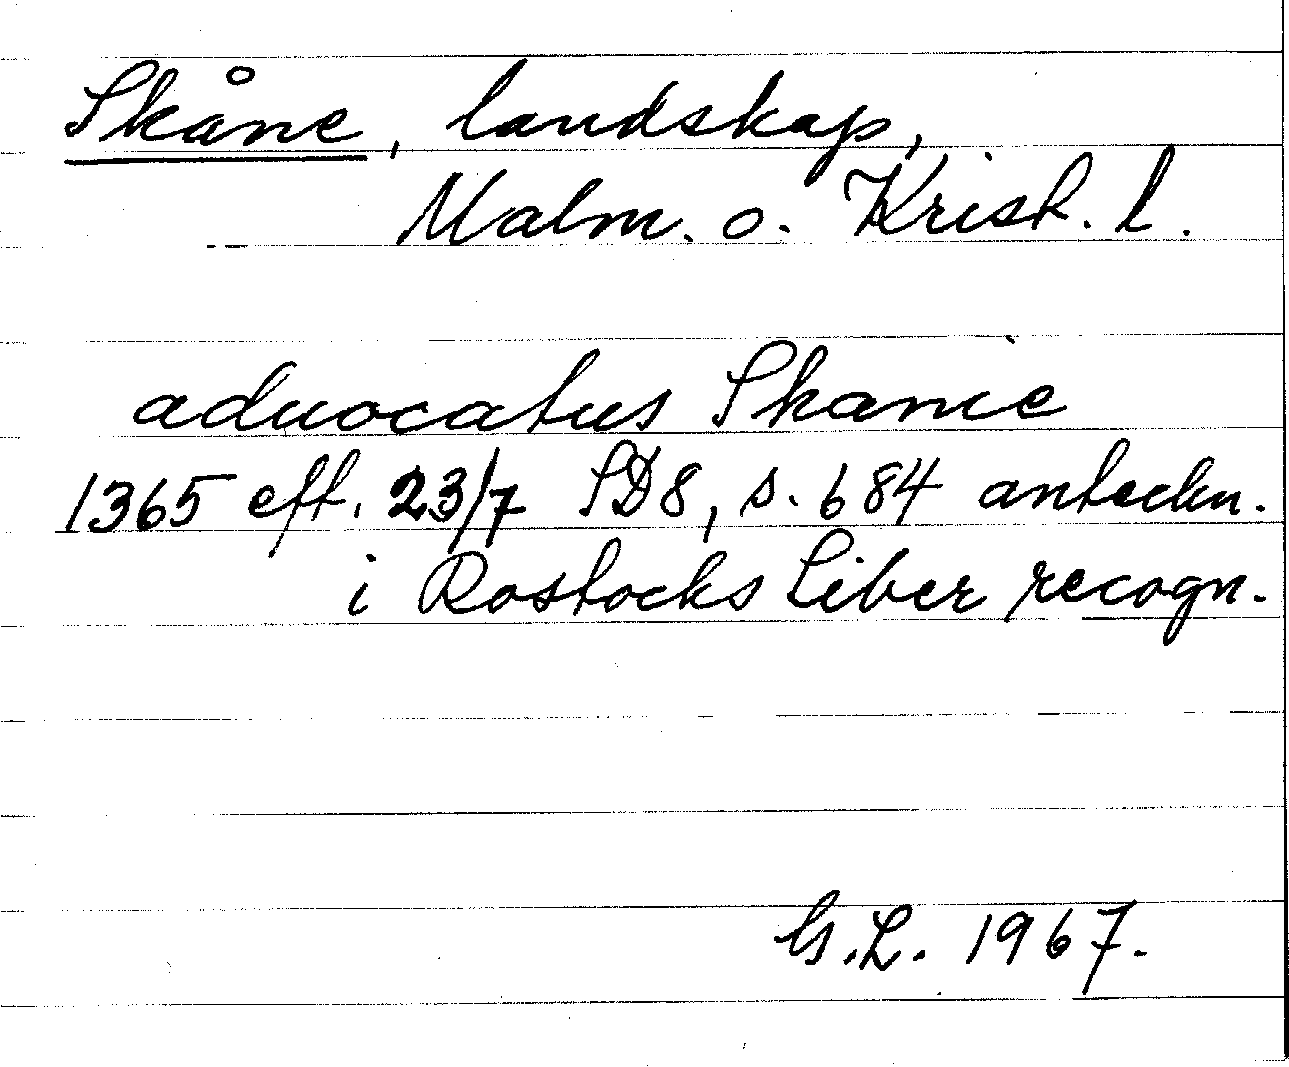 Skåne, landskap,
Malm. o. Krist. l.
aduocatus Skanie
1365 eft. 23/7 SD8, s. 684 anteckn.
i Rostocks Liber recogn.
G.L. 1967.